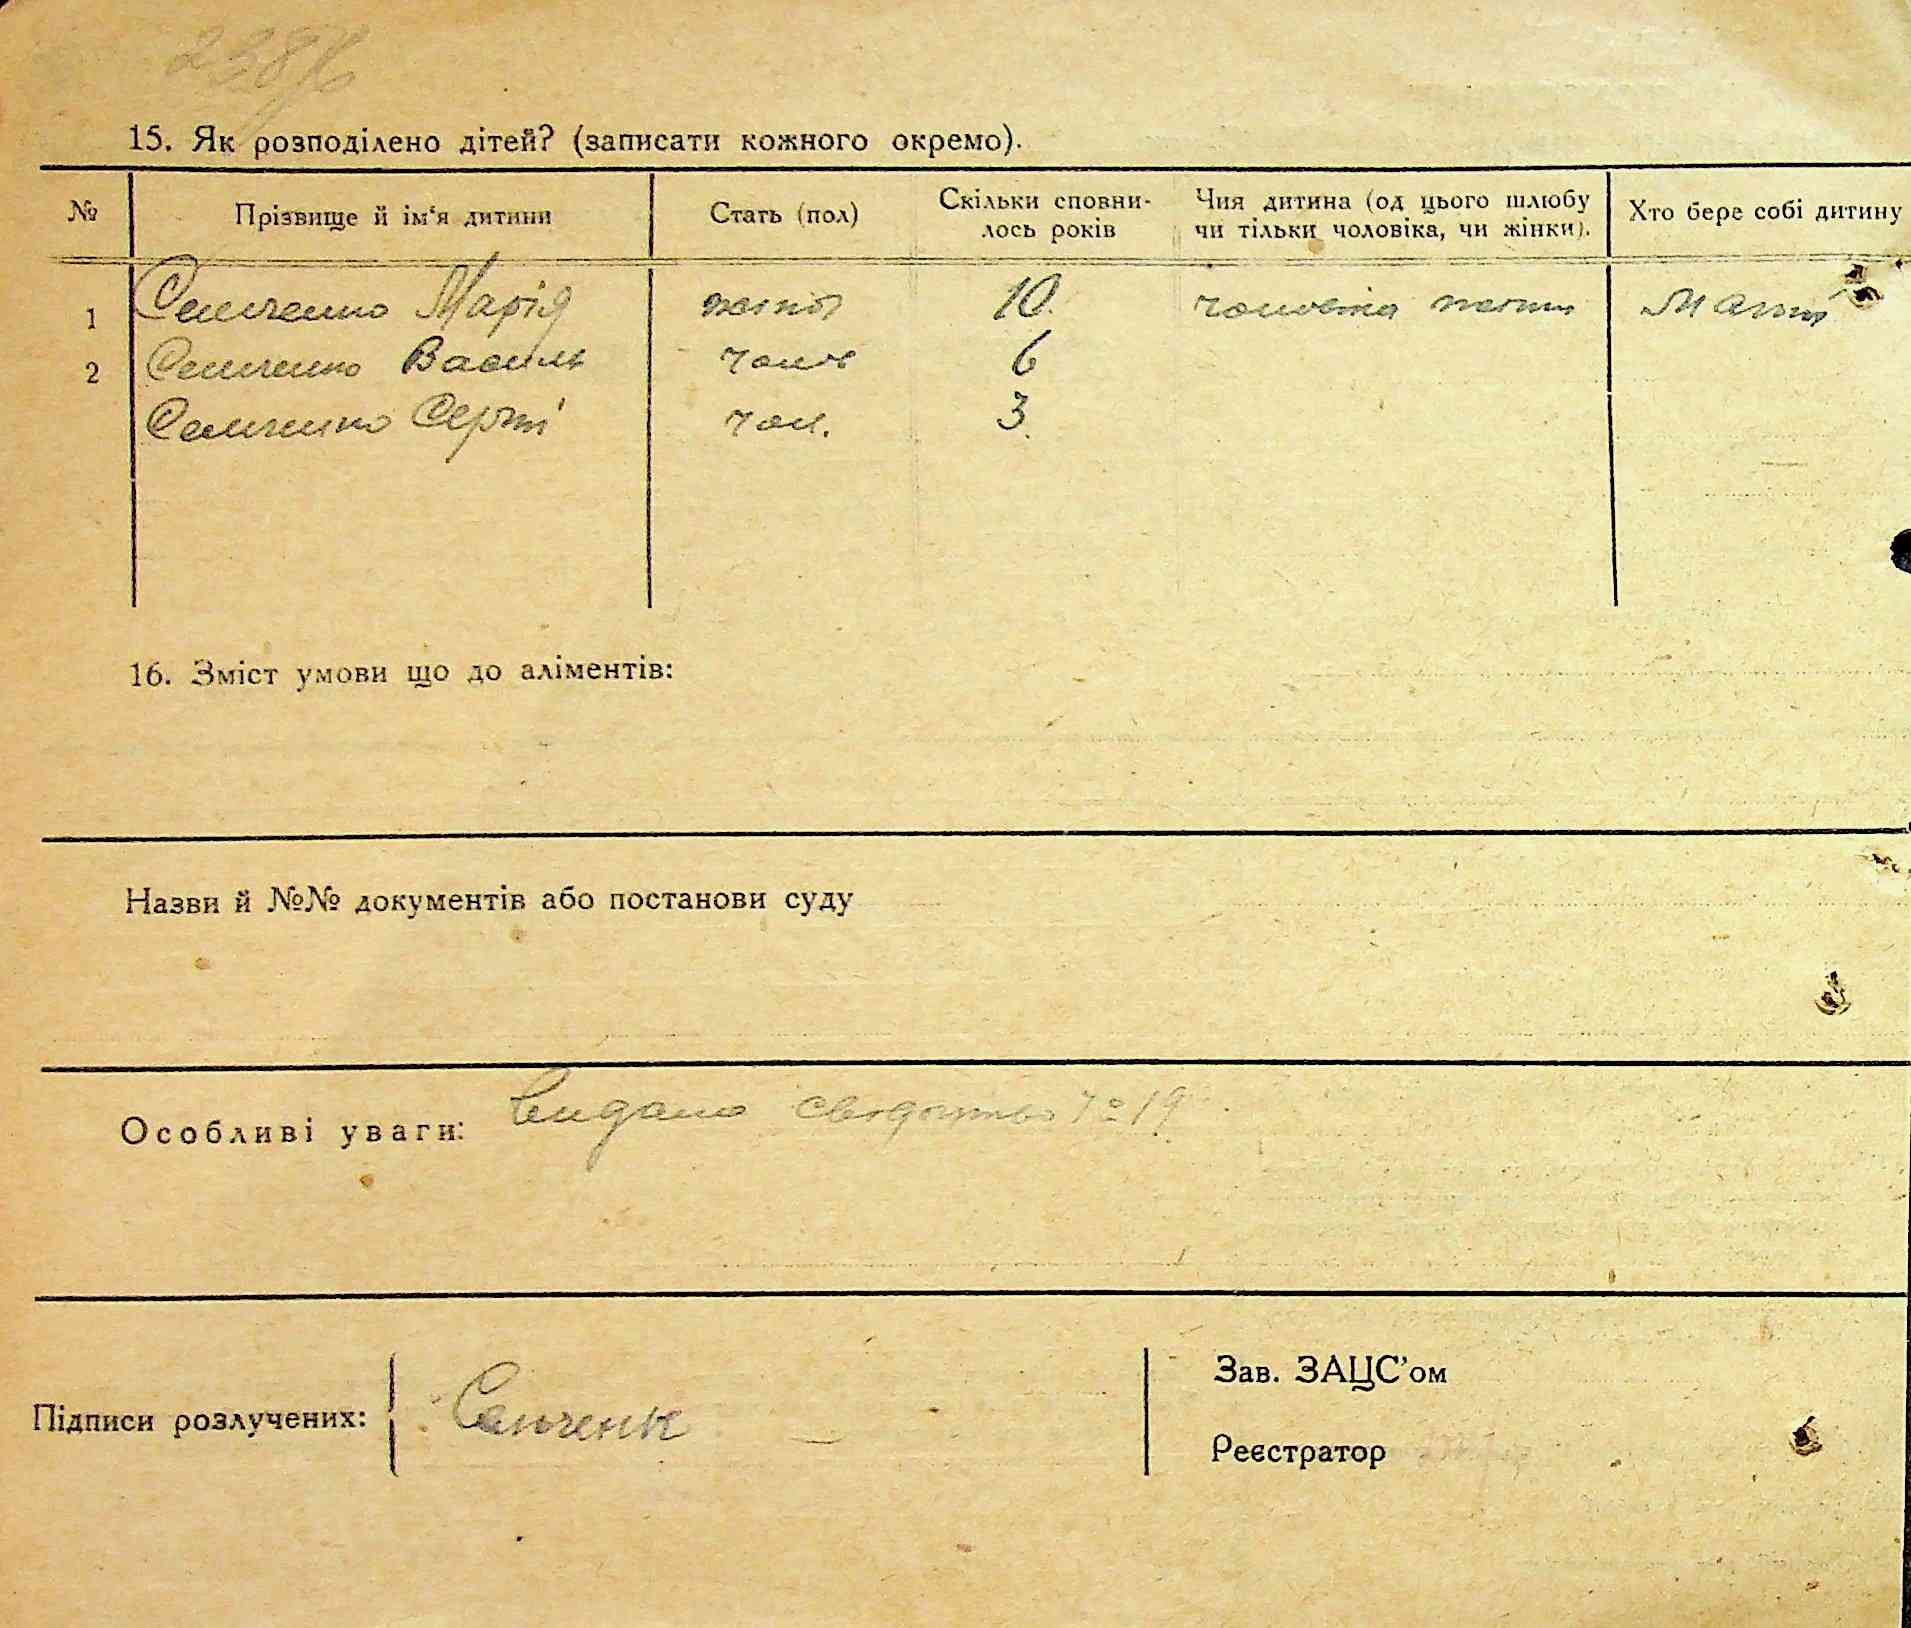 15. Як розподілено дітей? (записати кожного окремо).
№ Прізвище й ім'я дитини Стать (пол) Скільки сповни- Чия дитина (од цього шлюбу Хто бере собі дитину
лось років чи тільки чоловіка, чи жінки).
1 Семченко Марія жіноч 10. чоловіка жінки Мати
2 Семченко Василь чолов 6
Семченко Сергій чол. 3
16. Зміст умови що до аліментів:
Назви й №№ документів або постанови суду
Особливі уваги: Видано свідоцтво № 19
Підписи розлучених: Зав. ЗАЦС'ом
Реєстратор